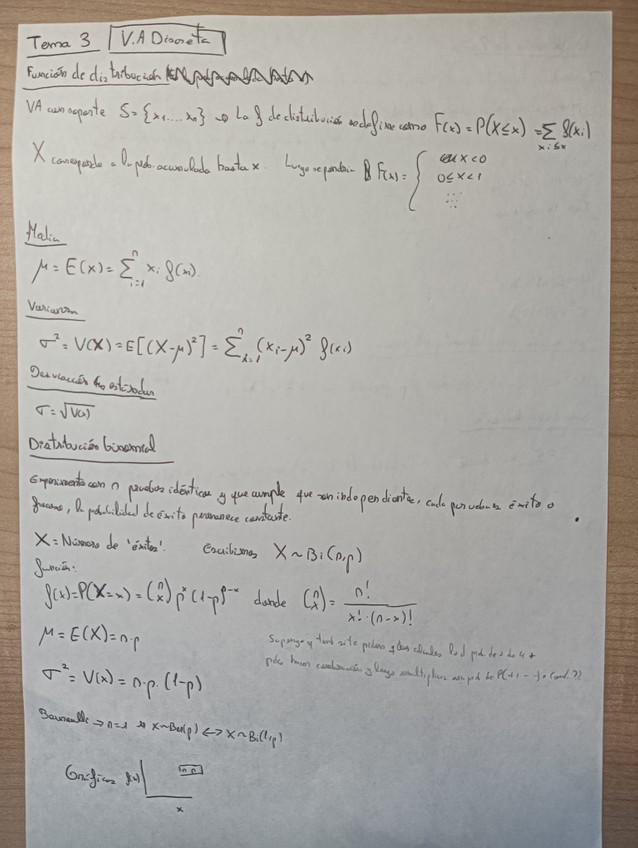 Tema 3 V.A Discreta
Función de distribución
VA con soporte S = {x₁,...,xₙ} → La f de distribución se define como F(x) = P(X ≤ x) = ∑_{xᵢ≤x} f(xᵢ)
X corresponde a la prob. acumulada hasta x. Luego se pondría F(x) = { x<0
0 ≤ x < 1
Media
μ = E(x) = ∑_{i=1}^{n} xᵢ f(xᵢ)
Varianza
σ² = V(X) = E[(X-μ)²] = ∑_{i=1}^{n} (xᵢ-μ)² f(xᵢ)
Desviación estándar
σ = √V(x)
Distribución binomial
Experimento con n pruebas idénticas y que cumple que son independiente, cada prueba es éxito o
fracaso, la probabilidad de éxito permanece constante.
X = Número de 'éxitos'. Escribimos X ~ Bi(n,p)
función:
f(x) = P(X=x) = (n x) pˣ (1-p)ⁿ⁻ˣ donde (n x) = n! / x!·(n-x)!
μ = E(X) = n·p
Supongo y
σ² = V(x) = n·p·(1-p)
Bernoulli → n=1 X~Ber(p) ↔ X~Bi(1,p)
Gráficas f(x)
x